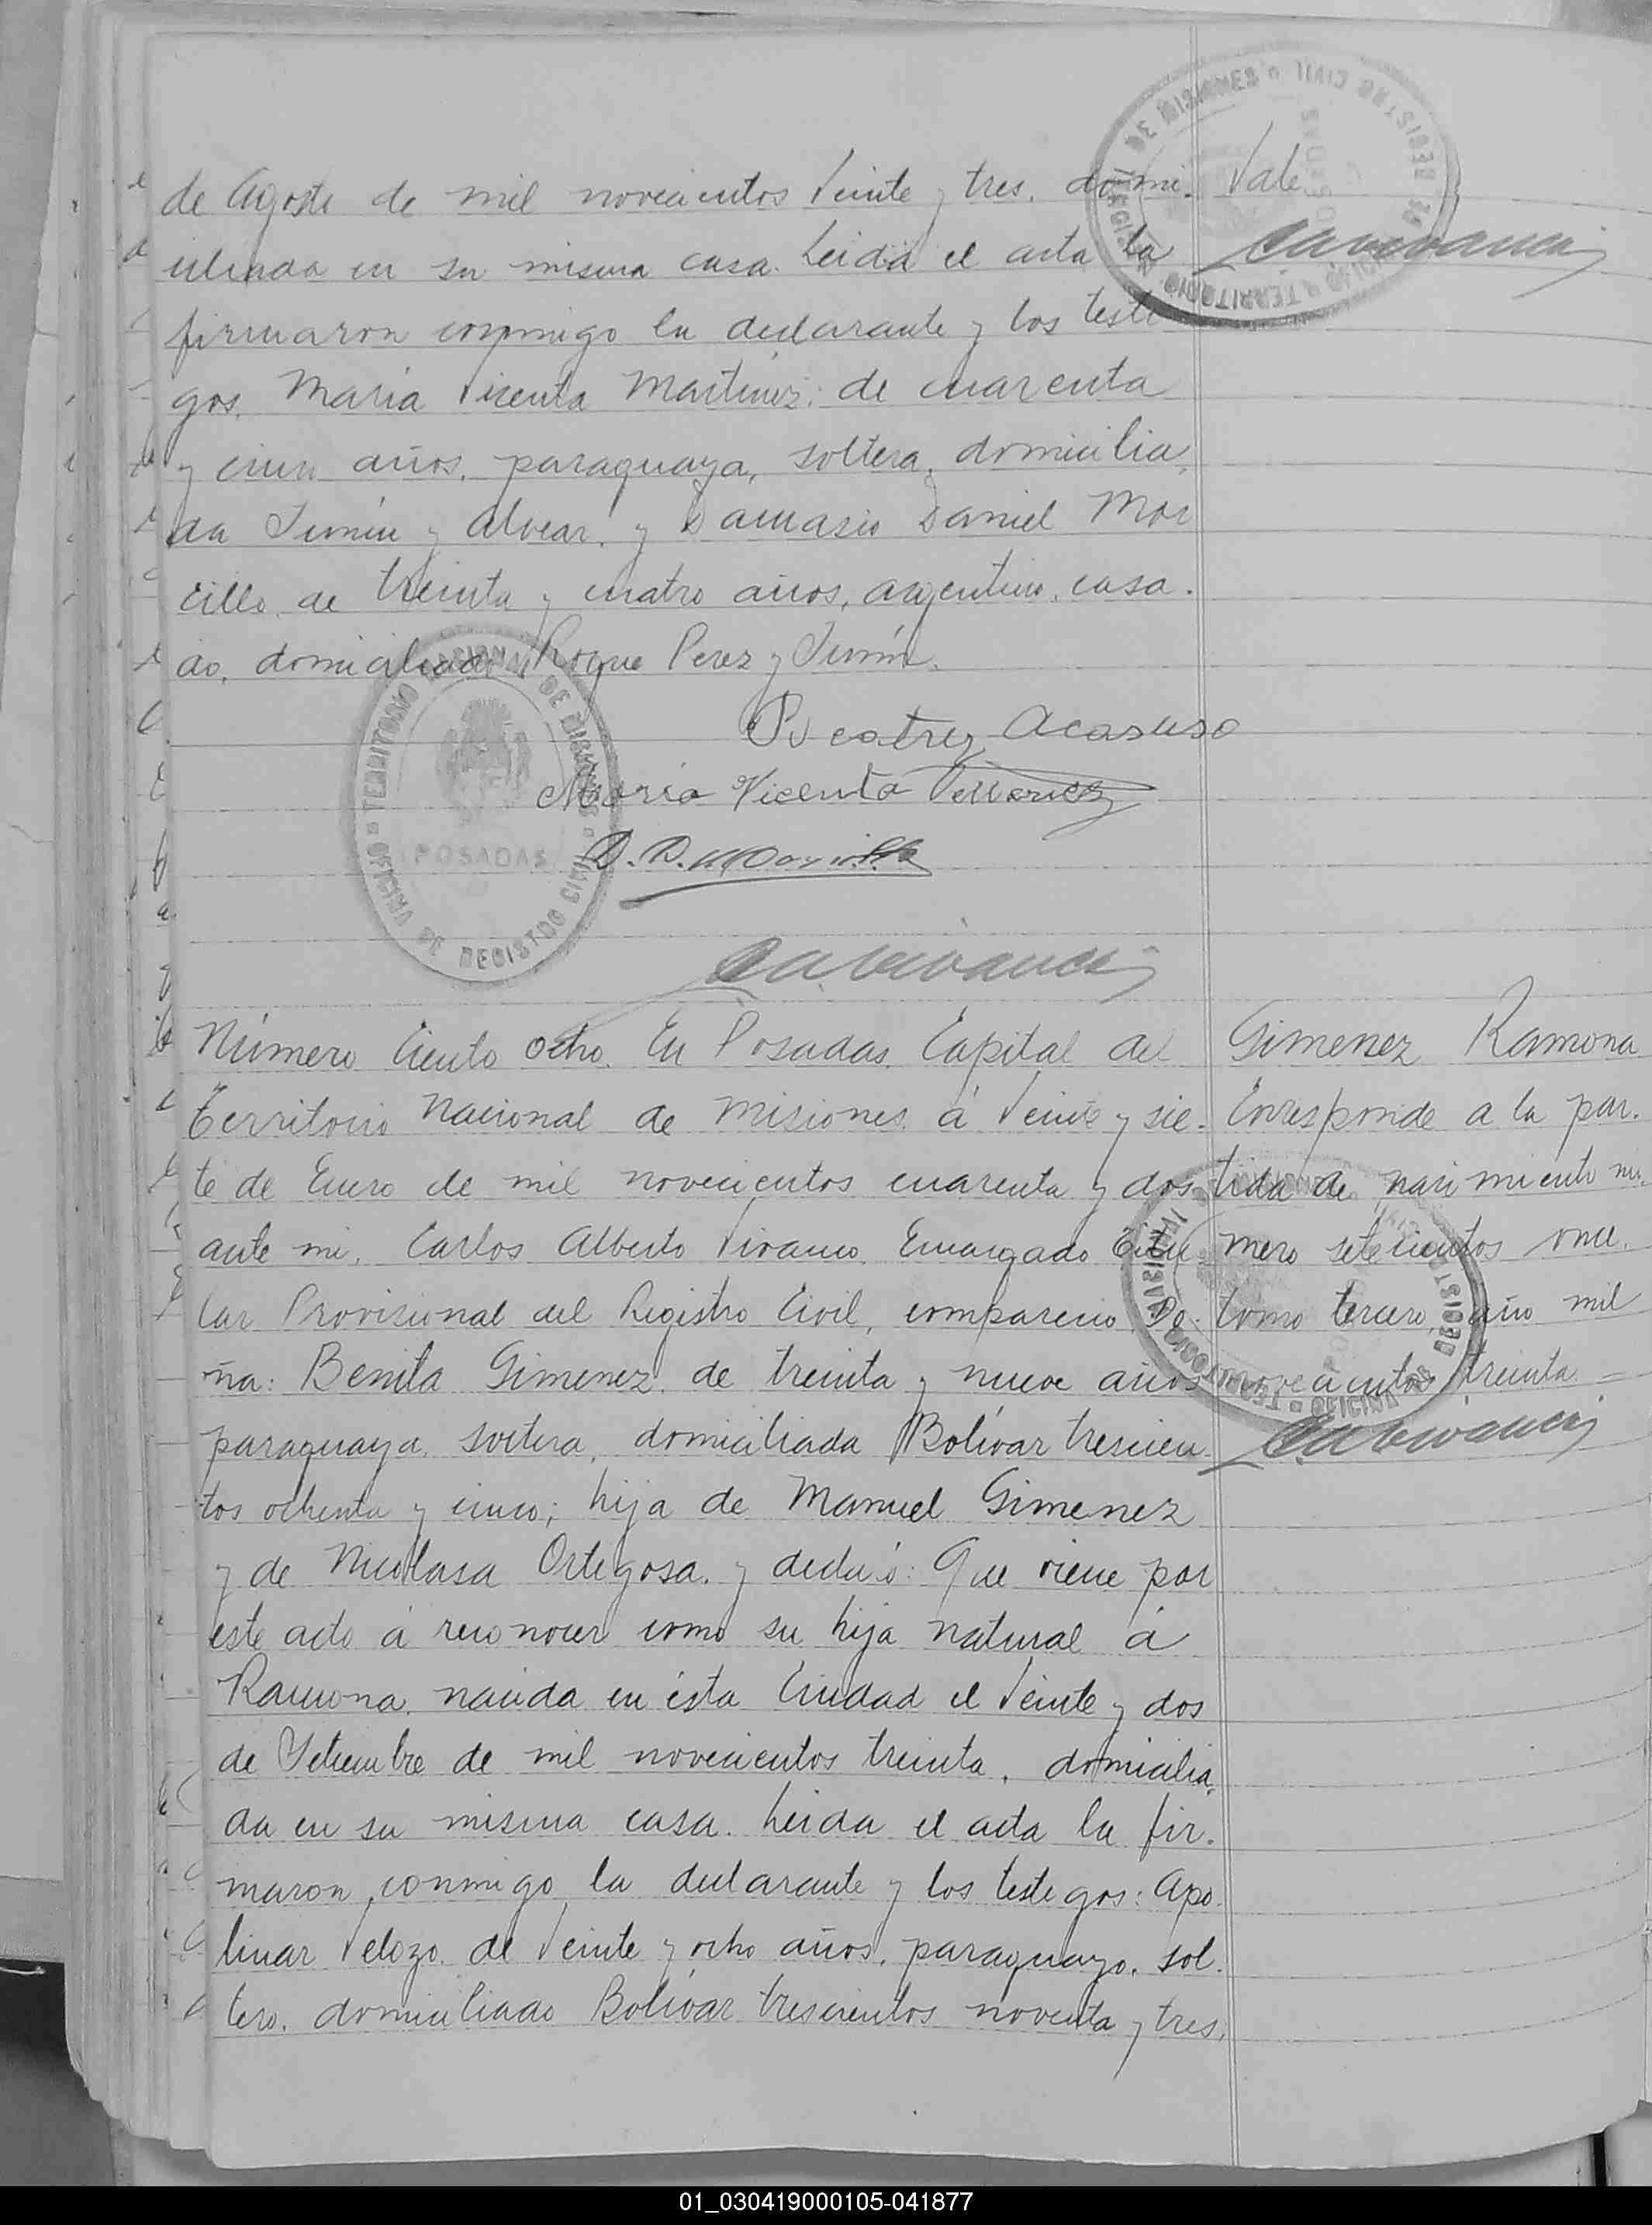 de Agosto de mil novecientos veinte y tres, domi-
ciliada en su misma casa. Leida el acta la
firmaron conmigo la declarante y los testi
gos. Maria Vicenta Martinez: de cuarenta
y cinco años, paraguaya, soltera, domicilia,
da Junín y Alvear. y Damasio Daniel Mor
cillo, de treinta y cuatro años, argentino, casa-
do, domiciliado Roque Perez y Junín.
Vale
Beatriz Acasuso
Maria Vicenta
TERRITORIO NACIONAL DE MISIONES
OFICINA DE REGISTRO CIVIL
POSADAS
Número Ciento ocho. En Posadas, Capital del
Territorio Nacional de Misiones, á veinte y sie-
te de Enero de mil novecientos cuarenta y dos
ante mi, Carlos Alberto Vivanco, Encargado Titu
lar Provisional del Registro Civil, compareció Do-
ña: Benita Gimenez, de treinta y nueve años
paraguaya, soltera, domiciliada Bolívar trescien
tos ochenta y cinco; hija de Manuel Gimenez
y de Nicolasa Ortegosa. y declaró: Que viene por
este acto á reconocer como su hija natural á
Ramona, nacida en ésta Ciudad el veinte y dos
de Setiembre de mil novecientos treinta, domicilia,
da en su misma casa. Leida el acta la fir-
maron conmigo la declarante y los testigos: Apo-
linar Velozo, de veinte y ocho años, paraguayo, sol-
tero, domiciliado Bolívar trescientos noventa y tres,
Gimenez Ramona
Corresponde a la par-
tida de nacimiento nú-
mero setecientos once,
tomo tercero, año mil
novecientos treinta =
01_030419000105-041877